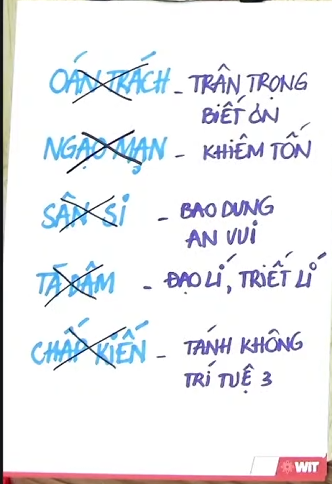 OÁN TRÁCH - TRÂN TRỌNG
BIẾT ƠN
NGẠO MẠN - KHIÊM TỐN
SÂN SI - BAO DUNG
AN VUI
TÀ DÂM - ĐẠO LÍ, TRIẾT LÍ
CHẤP KIẾN - TÁNH KHÔNG
TRÍ TUỆ 3
WIT